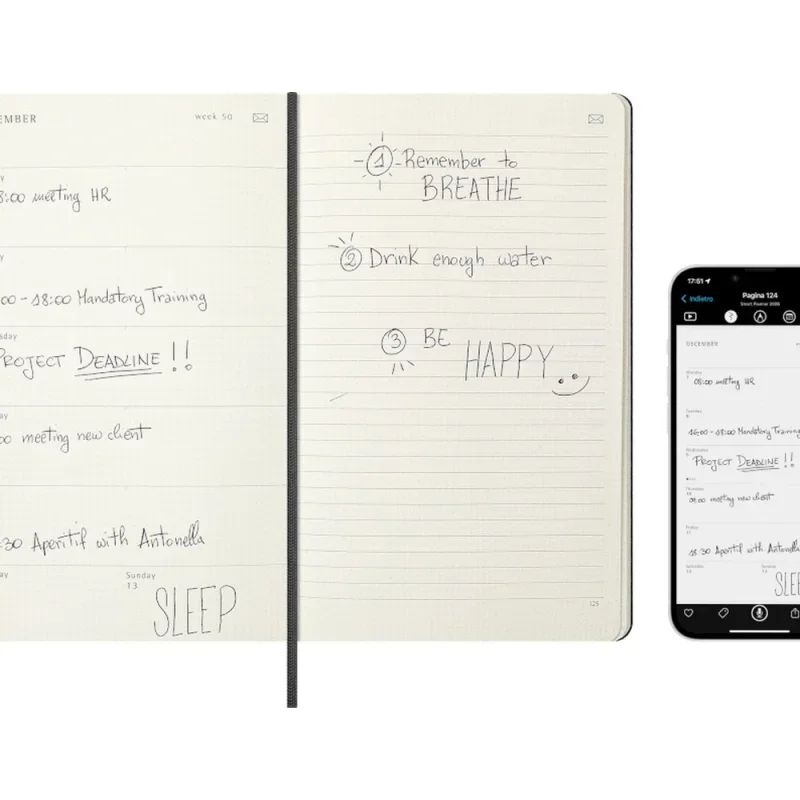 EMBER week 50
8:00 meeting HR
00 - 18:00 Mandatory Training
PROJECT DEADLINE !!
00 meeting new client
:30 Aperitif with Antonella
Sunday
13
SLEEP
1 Remember to
BREATHE
2 Drink enough water
3 BE
HAPPY
125
17:51
Indietro Pagina 124
DECEMBER
Monday
7 08:00 meeting HR
Tuesday
8
16:00 - 18:00 Mandatory Training
Wednesday
9 PROJECT DEADLINE !!
Thursday
10
09:00 meeting new client
Friday
11
18:30 Aperitif with Antonella
Saturday Sunday
12 13
SLEE